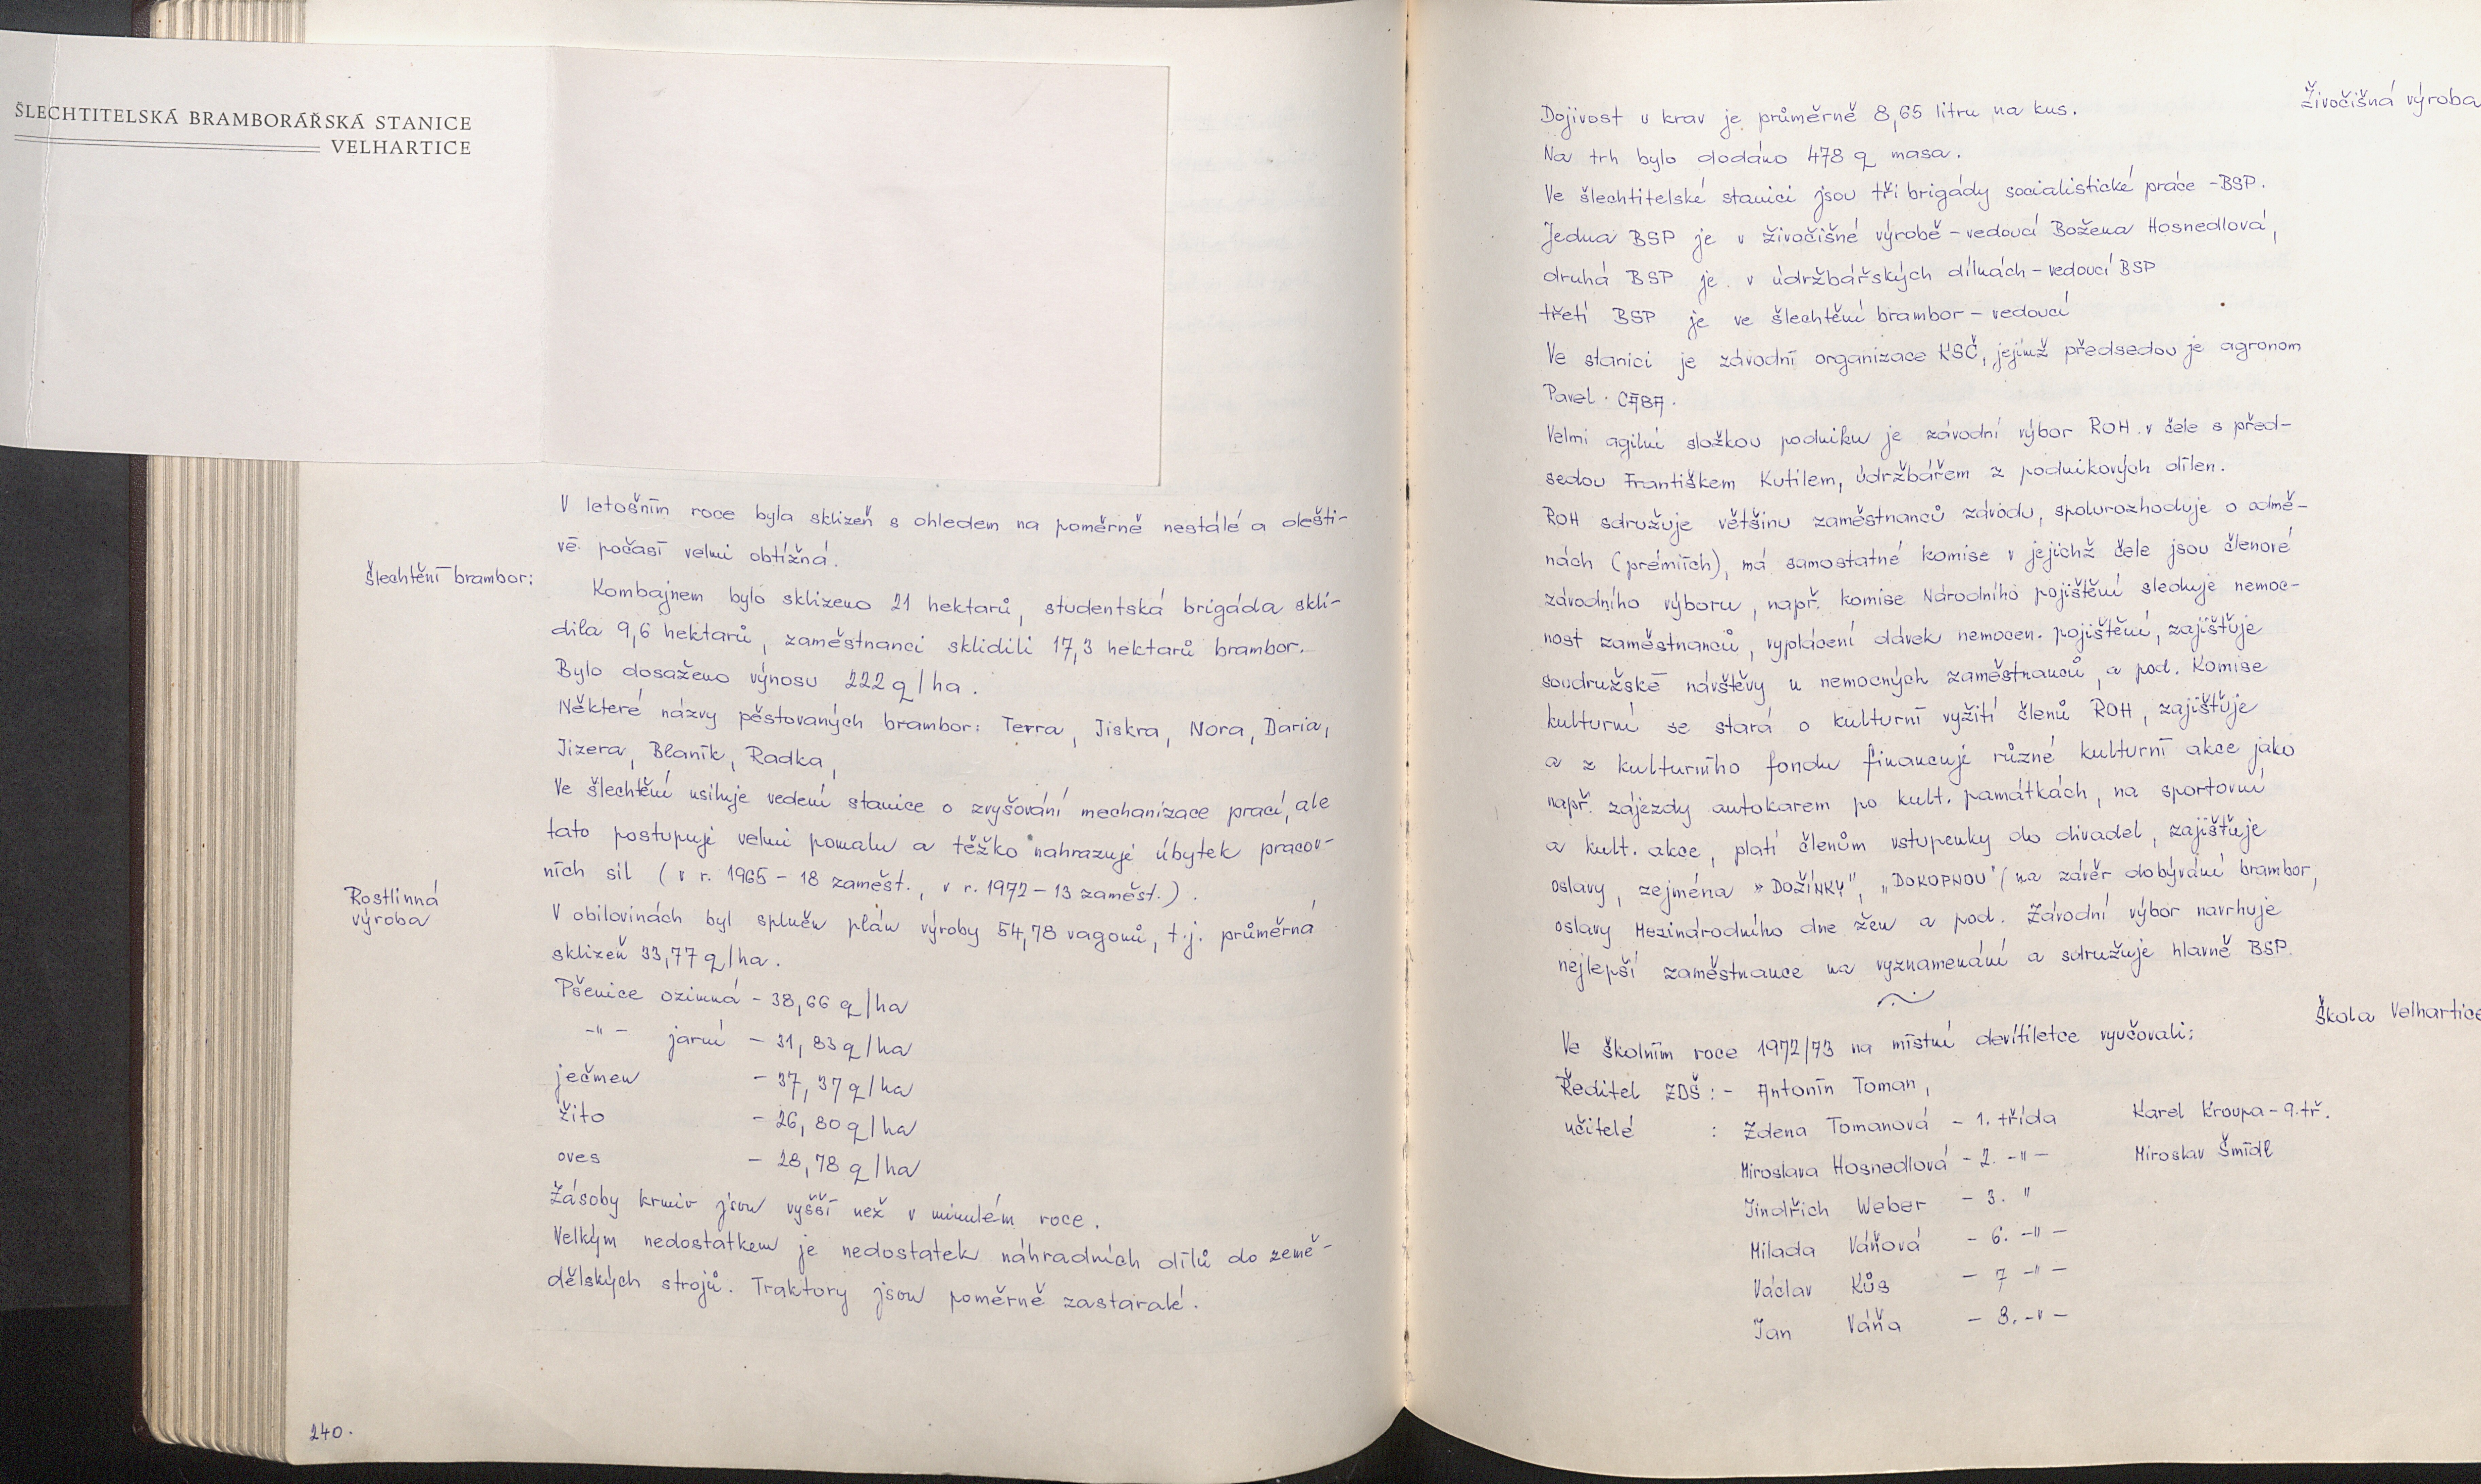 ŠLECHTITELSKÁ BRAMBORÁŘSKÁ STANICE
VELHARTICE
V letošním roce byla sklizeň s ohledem na poměrně nestálé a dešti-
vé počasí velmi obtížná.
Šlechtění brambor:
Kombajnem bylo sklizeno 21 hektarů, studentská brigáda skli-
dila 9,6 hektarů, zaměstnanci sklidili 17,3 hektarů brambor.
Bylo dosaženo výnosu 222 q/ha.
Některé názvy pěstovaných brambor: Terra, Jiskra, Nora, Daria,
Jizera, Blaník, Radka,
Ve šlechtění usiluje vedení stanice o zvyšování mechanizace prací, ale
tato postupuje velmi pomalu a těžko nahrazuje úbytek pracov-
ních sil (v r. 1965 - 18 zaměst., v r. 1972 - 13 zaměst.).
Rostlinná
výroba
V obilovinách byl splněn plán výroby 54,78 vagonů, t.j. průměrná
sklizeň 33,77 q/ha.
Pšenice ozimná - 38,66 q/ha
-"- jarní - 31,83 q/ha
ječmen - 37,37 q/ha
žito - 26,80 q/ha
oves - 28,78 q/ha
Zásoby krmiv jsou vyšší než v minulém roce.
Velkým nedostatkem je nedostatek náhradních dílů do země-
dělských strojů. Traktory jsou poměrně zastaralé.
240.
Živočišná výroba
Dojivost u krav je průměrně 8,65 litru na kus.
Na trh bylo dodáno 478 q masa.
Ve šlechtitelské stanici jsou tři brigády socialistické práce - BSP.
Jedna BSP je v živočišné výrobě - vedoucí Božena Hosnedlová,
druhá BSP je v údržbářských dílnách - vedoucí BSP
třetí BSP je ve šlechtění brambor - vedoucí
Ve stanici je závodní organizace KSČ, jejímž předsedou je agronom
Pavel CÁBA.
Velmi agilní složkou podniku je závodní výbor ROH v čele s před-
sedou Františkem Kutilem, údržbářem z podnikových dílen.
ROH sdružuje většinu zaměstnanců závodu, spolurozhoduje o odmě-
nách (prémiích), má samostatné komise v jejichž čele jsou členové
závodního výboru, např. komise Národního pojištění sleduje nemoc-
nost zaměstnanců, vyplácení dávek nemocen. pojištění, zajišťuje
soudružské návštěvy u nemocných zaměstnanců, a pod. Komise
kulturní se stará o kulturní vyžití členů ROH, zajišťuje
a z kulturního fondu financuje různé kulturní akce jako
např. zájezdy autokarem po kult. památkách, na sportovní
a kult. akce, platí členům vstupenky do divadel, zajišťuje
oslavy, zejména "DOŽÍNKY", "DOKOPNOU" (na závěr dobývání brambor,
oslavy Mezinárodního dne žen a pod. Závodní výbor navrhuje
nejlepší zaměstnance na vyznamenání a sdružuje hlavně BSP.
Škola Velhartice
Ve školním roce 1972/73 na místní devítiletce vyučovali:
Ředitel ZDŠ: - Antonín Toman,
učitelé : Zdena Tomanová - 1. třída Karel Kroupa - 9. tř.
Miroslava Hosnedlová - 2. -"- Miroslav Šmídl
Jindřich Weber - 3. "
Milada Váňová - 6. -"-
Václav Kůs - 7 -"-
Jan Váňa - 8. -"-